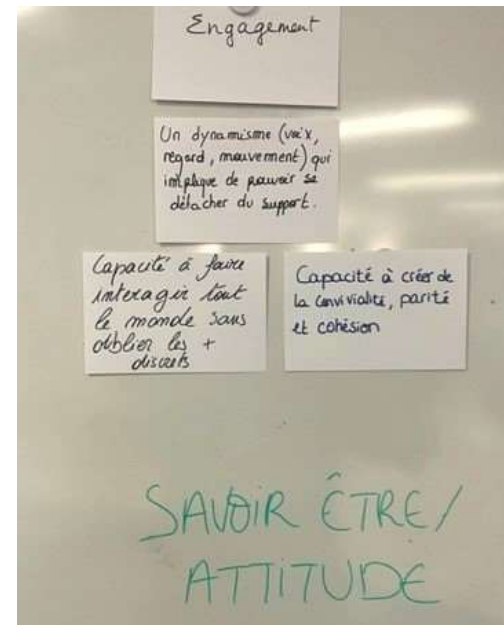 Engagement
Un dynamisme (voix,
regard, mouvement) qui
implique de pouvoir se
détacher du support.
Capacité à faire
interagir tout
le monde sans
oublier les +
discrets
Capacité à créer de
la convivialité, parité
et cohésion
SAVOIR ÊTRE/
ATTITUDE